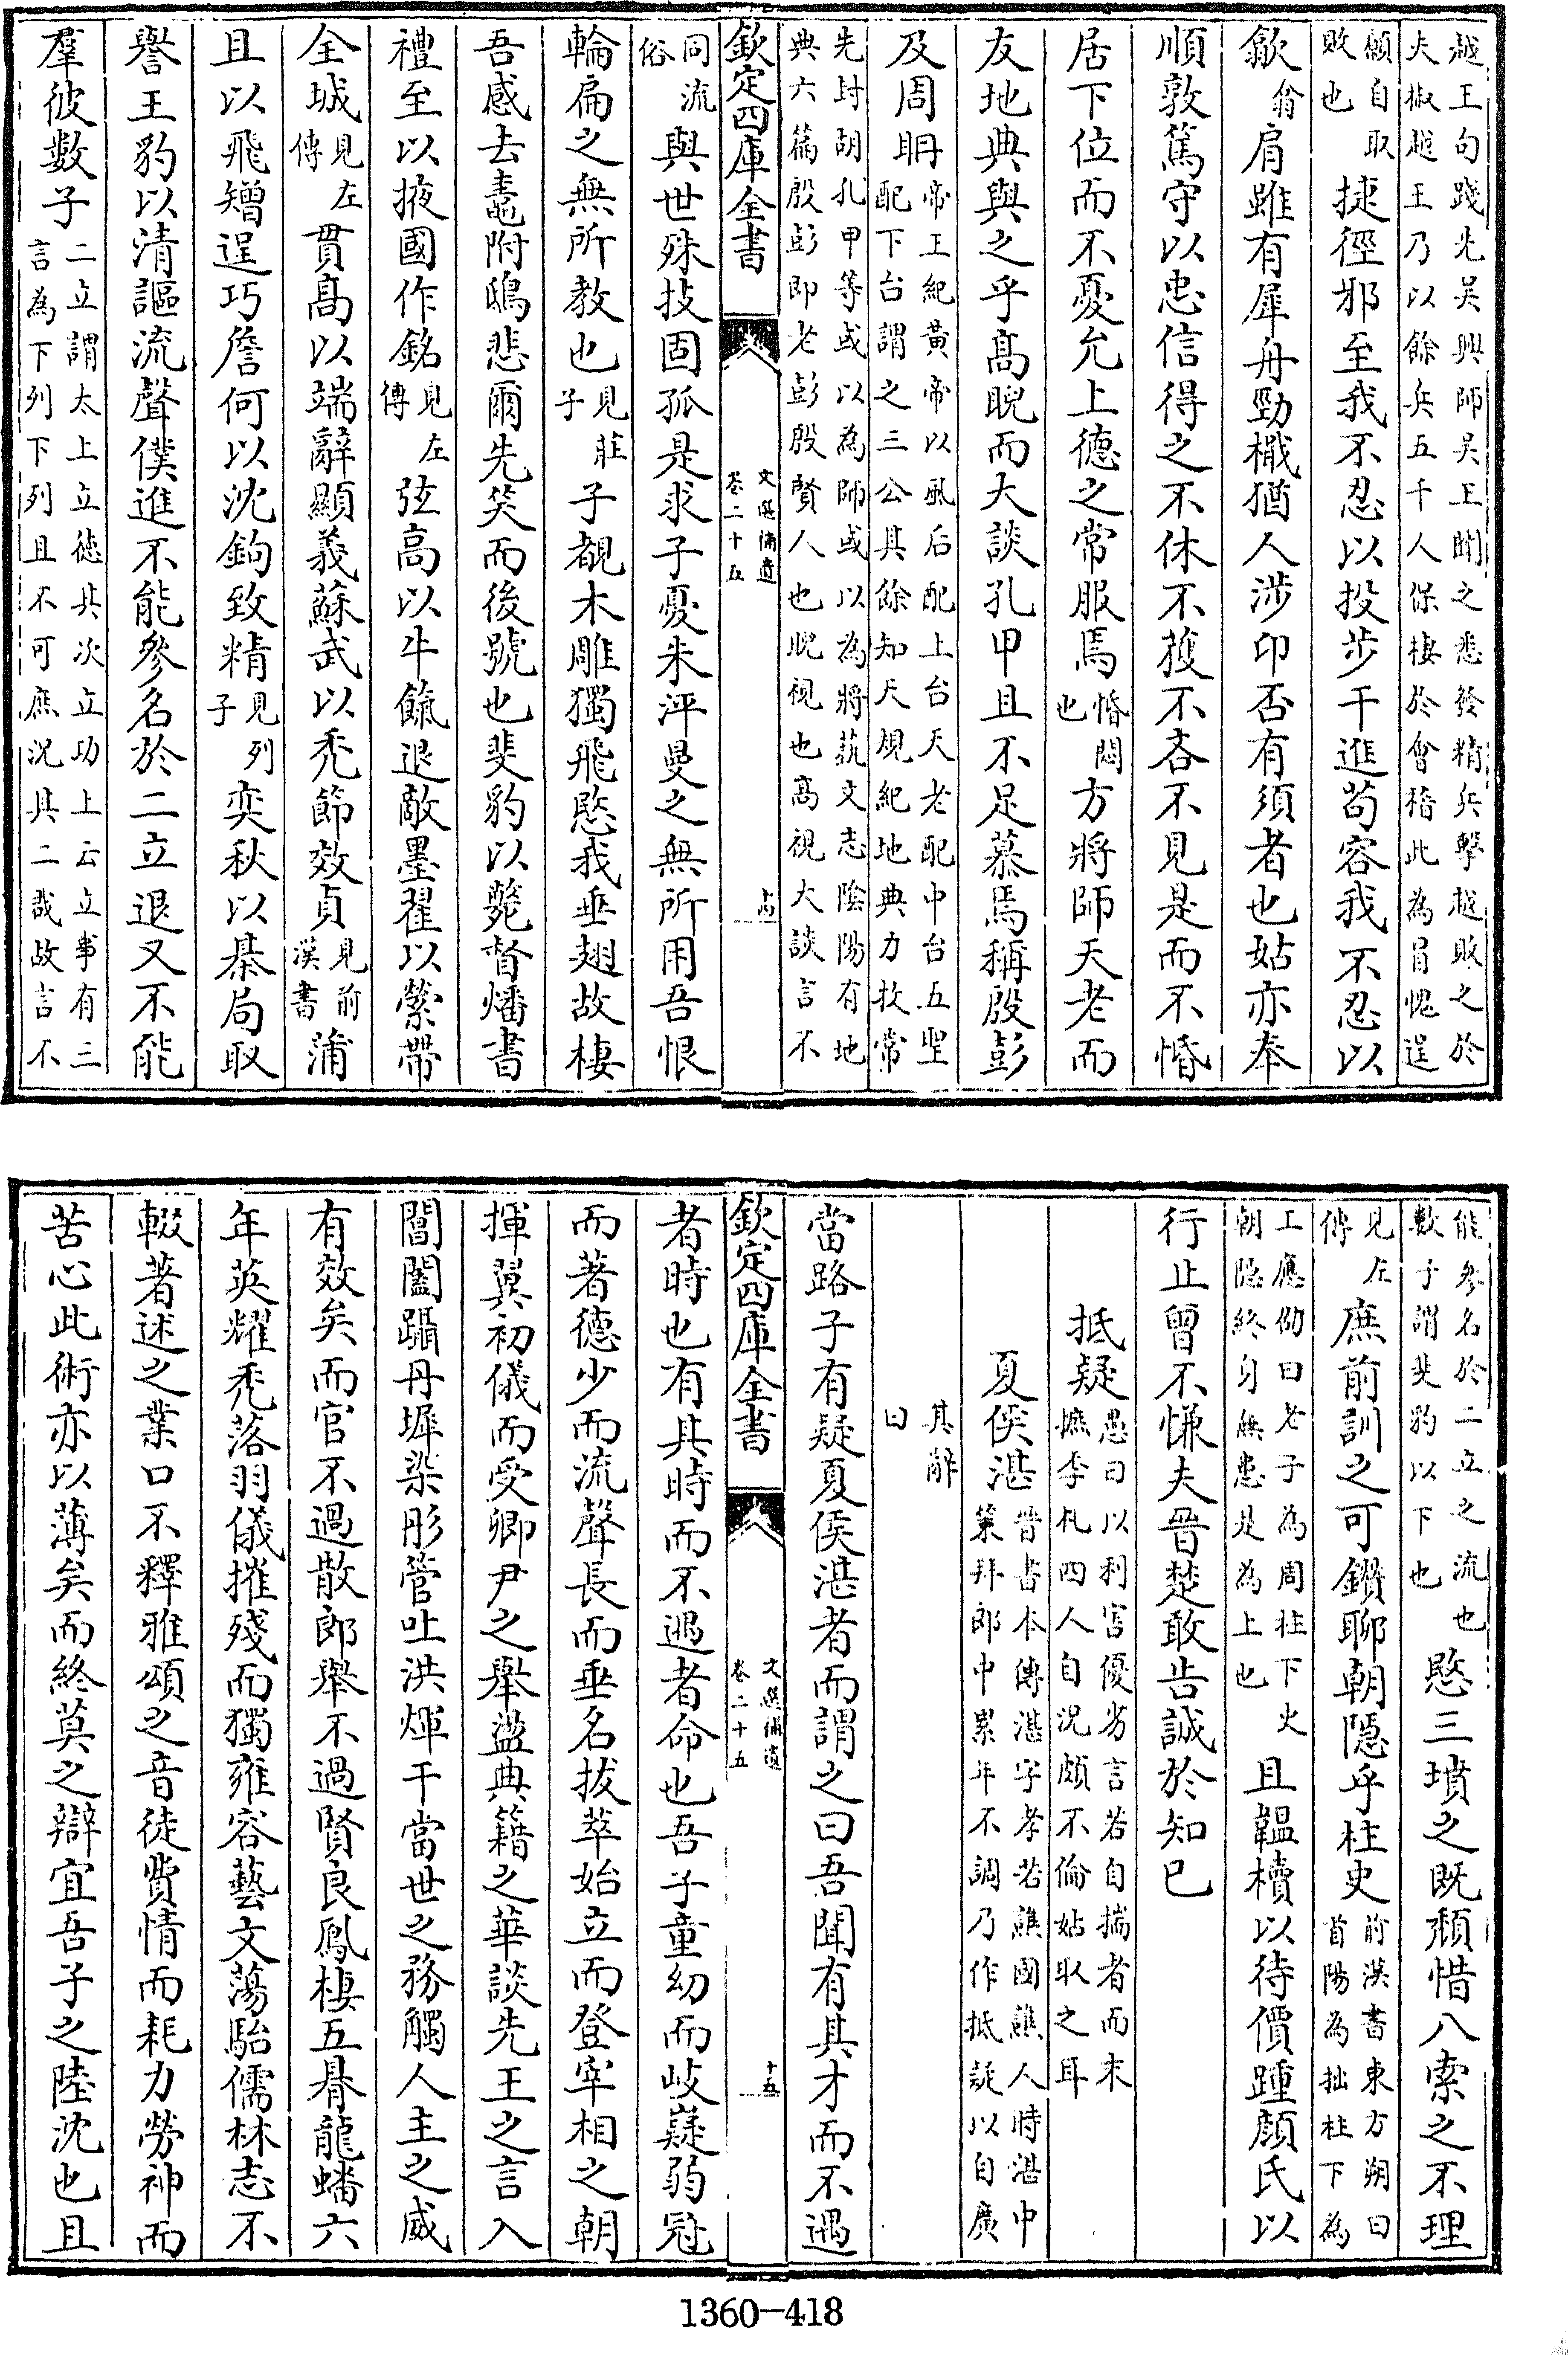 越王句踐先吳興師吳王聞之悉發精兵擊越敗之於
夫椒越王乃以餘兵五千人保棲於會稽此為冒愧逞
顧自取
敗也
捷徑邪至我不忍以投步干進苟容我不忍以
歙翕肩雖有犀舟勁檝猶人涉印否有須者也姑亦奉
順敦篤守以忠信得之不休不獲不吝不見是而不惛
居下位而不憂允上德之常服焉
惛悶
也
方將師天老而
友地典與之乎高睨而大談孔甲且不足慕焉稱殷彭
及周聃
帝王紀黃帝以風后配上台天老配中台五聖
配下台謂之三公其餘知天規紀地典力牧常
先封胡孔甲等或以為師或以為將蓺文志陰陽有地
典六篇殷彭即老彭殷賢人也睨視也高視大談言不
欽定四庫全書
文選補遺
卷二十五
十四
同流
俗
與世殊技固孤是求子憂朱泙曼之無所用吾恨
輪扁之無所教也
見莊
子
子覩木雕獨飛愍我垂翅故棲
吾感去鼃附鴟悲爾先笑而後號也斐豹以斃督燔書
禮至以掖國作銘
見左
傳
弦高以牛餼退敵墨翟以縈帶
全城
見左
傳
貫高以端辭顯義蘇武以禿節效貞
見前
漢書
蒲
且以飛矰逞巧詹何以沈鉤致精
見列
子
奕秋以棊局取
譽王豹以清謳流聲僕進不能參名於二立退又不能
羣彼數子
二立謂太上立德其次立功上云立事有三
言為下列下列且不可庶況其二哉故言不
能參名於二立之流也
數子謂斐豹以下也
愍三墳之既頹惜八索之不理
見左
傳
庶前訓之可鑽聊朝隱乎柱史
前漢書東方朔曰
首陽為拙柱下為
工應劭曰老子為周柱下史
朝隱終身無患是為上也
且韞櫝以待價踵顏氏以
行止曾不慊夫晉楚敢告誠於知已
抵疑
愚曰以利害優劣言若自揣者而末
摭季札四人自況頗不倫姑取之耳
夏侯湛
晉書本傳湛字孝若譙國譙人時湛中
策拜郎中累年不調乃作抵疑以自廣
其辭
曰
當路子有疑夏侯湛者而謂之曰吾聞有其才而不遇
欽定四庫全書
文選補遺
卷二十五
十五
者時也有其時而不遇者命也吾子童幼而岐嶷弱冠
而著德少而流聲長而垂名拔萃始立而登宰相之朝
揮翼初儀而受卿尹之舉盪典籍之華談先王之言入
閶闔躡丹墀染彤管吐洪煇干當世之務觸人主之威
有效矣而官不過散郎舉不過賢良鳳棲五朞龍蟠六
年英耀禿落羽儀摧殘而獨雍容藝文蕩駘儒林志不
輟著述之業口不釋雅頌之音徒費情而耗力勞神而
苦心此術亦以薄矣而終莫之辯宜吾子之陸沈也且
1360-418